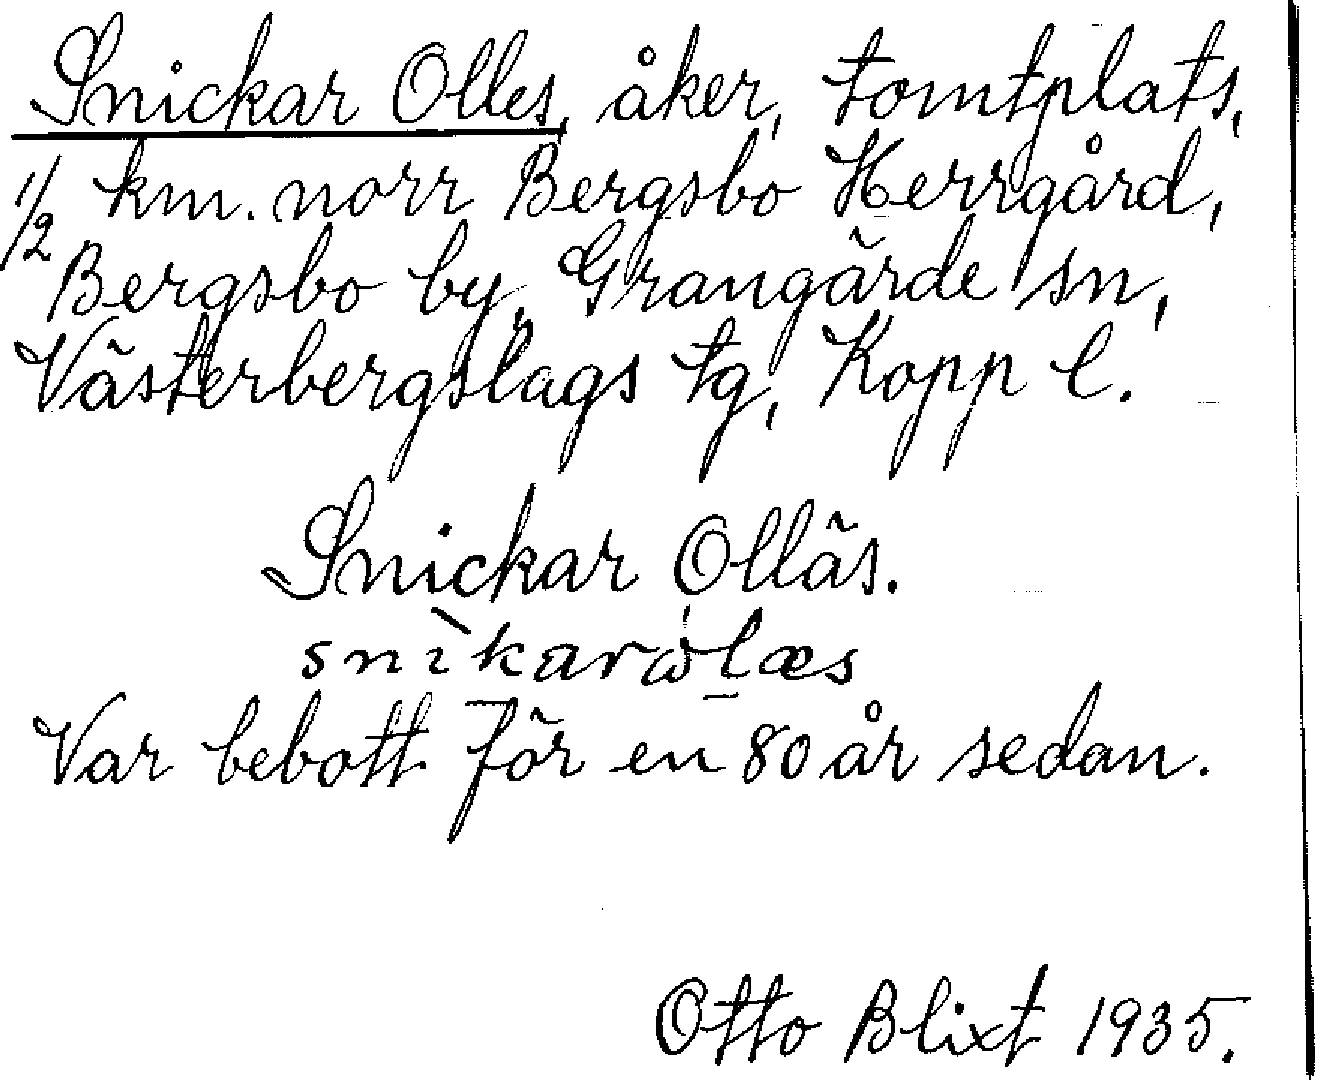 Snickar Olles, åker, tomtplats,
1/2 km. norr Bergsbo Herrgård,
Bergsbo by, Grangärde sn,
Västerbergslags tg, Kopp l.
Snickar Olläs.
snìkarωlæs
Var bebott för en 80 år sedan.
Otto Blixt 1935.